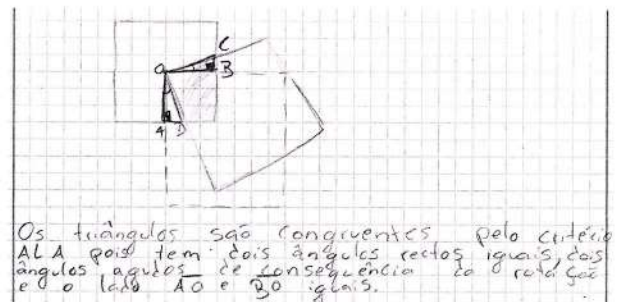 C
O
B
A D
Os triângulos são congruentes pelo critério
ALA pois tem dois ângulos rectos iguais, dois
ângulos agudos de consequência da rotação
e o lado AO e BO iguais.